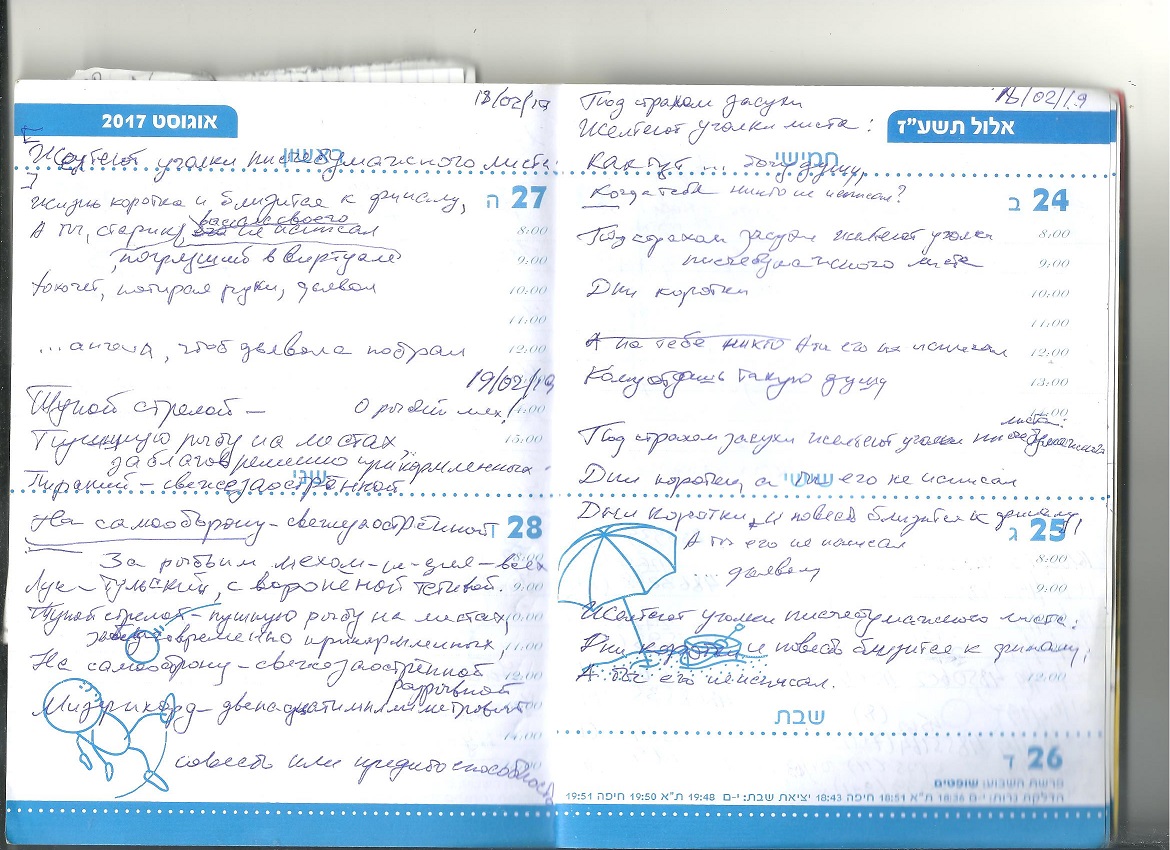 אוגוסט 2017
18/02/19
ראשון
Желтеют уголки писчебумажного листа:
27 ה
Жизнь коротка и близится к финалу,
8:00
А ты, старик, его не исписал
9:00
погрязший в виртуале
10:00
Хохочет, потирая руки, дьявол
11:00
12:00
... ангела, чтоб дьявола побрал
19/02/19
Тупой стрелой – О рыбий мех!
15:00
Пушную рыбу на местах
заблаговременно прикормленных
שני
Пираний – свежезаострённой
28 ו
На самооборону – свежезаострённой
8:00
За рыбьим мехом – и – для – всех
9:00
Лук – тульский, с воронёной тетивой.
10:00
Тупой стрелой – пушную рыбу на местах,
11:00
заблаговременно прикормленных,
12:00
На самооборону – свежезаострённой
разрывной
Мизерикорд – двенадцатимиллиметровый
совесть или кредитоспособность
אלול תשע"ז
18/02/19
Под страхом засухи
Желтеют уголки листа:
חמישי
24 ב
Когда тебя никто не исписал?
8:00
Под страхом засухи желтеют уголки
9:00
писчебумажного листа
10:00
Дни коротки
11:00
12:00
А на тебе никто А ты его не исписал
13:00
Кому отдашь такую душу
листа:
Под страхом засухи желтеют уголки писчебумажного
שישי
Дни коротки, а ты его не исписал
25 ג
Дни коротки и повесть близится к финалу,
8:00
А ты его не исписал
9:00
дьявол
Желтеют уголки писчебумажного листа:
Дни коротки и повесть близится к финалу,
12:00
А ты его не исписал.
שבת
26 ד
פרשת השבוע: שופטים
הדלקת נרות: י-ם 18:36 ת"א 18:51 חיפה 18:43 יציאת שבת: י-ם 19:48 ת"א 19:50 חיפה 19:51